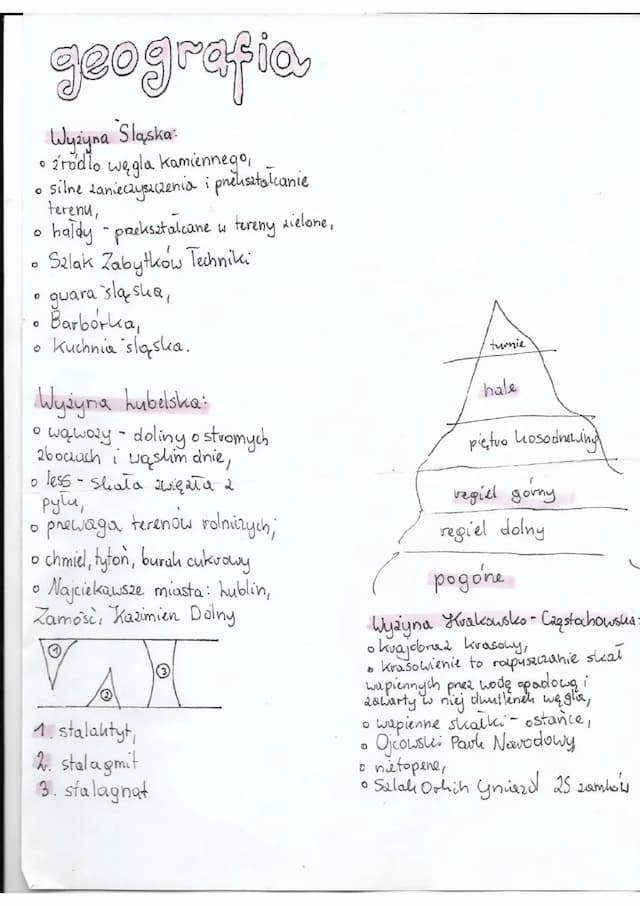 geografia
Wyżyna Śląska:
o źródło węgla kamiennego,
o silne zanieczyszczenia i przekształcanie
terenu,
o hałdy - przekształcane w tereny zielone,
o Szlak Zabytków Techniki
o gwara śląska,
o Barbórka,
o Kuchnia śląska.
Wyżyna Lubelska:
o wąwozy - doliny o stromych
zboczach i wąskim dnie,
o less - skała zwięzła z
pyłu,
o przewaga terenów rolniczych,
o chmiel, tytoń, burak cukrowy
o Najciekawsze miasta: Lublin,
Zamość, Kazimierz Dolny
1
2
3
1 stalaktyt,
2. stalagmit
3. stalagnat
turnie
hale
piętro kosodrzewiny
regiel górny
regiel dolny
pogórze
Wyżyna Krakowsko-Częstochowska:
o krajobraz krasowy,
o krasowienie to rozpuszczanie skał
wapiennych przez wodę opadową i
zawarty w niej dwutlenek węgla,
o wapienne skałki - ostańce,
o Ojcowski Park Narodowy
o nietoperze,
o Szlak Orlich Gniazd 25 zamków